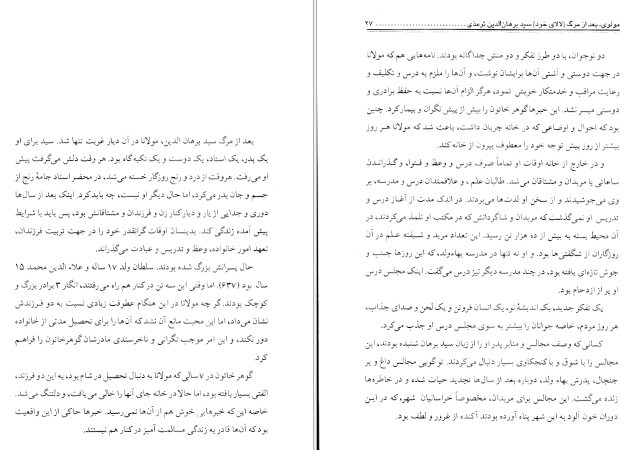 بعد از مرگ سید برهان الدین، مولانا در آن دیار غربت تنها شد. سید برای او
یک پدر، یک استاد، یک دوست و یک تکیه‌گاه بود. هر وقت دلش می‌گرفت پیش
او می‌رفت. هروقت از درد و رنج روزگار خسته می‌شد، در محضر استاد جامهٔ رنج از
جسم و جان بدر می‌کرد، اما حال دیگر او نیست، چه باید کرد. اینک بعد از سال‌ها
دوری و جدایی از یار و دیار کنار زن و فرزندان و مشتاقانش بود، پس باید با شرایط
پیش آمده زندگی کند. بدینسان اوقات گرانقدر خود را در جهت تربیت فرزندان،
تعهد امور خانواده، وعظ و تدریس و عبادت می‌گذراند.
حال پسرانش بزرگ شده بودند. سلطان ولد ۱۷ ساله و علاء الدین محمد ۱۵
ساله بود (۶۳۷). اما وقتی این سه تن در کنار هم راه می‌رفتند، انگار ۳ برادر بزرگ و
کوچک بودند. گر چه مولانا در این هنگام عطوفت زیادی نسبت به دو فرزندش
نشان می‌داد، اما این محبت مانع آن نشد که آن‌ها را برای تحصیل مدتی از خانواده
دور نکند، و این امر موجب نگرانی و ناخرسندی مادرشان گوهرخاتون را فراهم
کرد.
گوهر خاتون در ۷ سالی که مولانا به دنبال تحصیل در شام بود، به این دو فرزند،
الفتی بسیار یافته بود، اما حالا در خانه جای آنها را خالی می‌یافت، و دلتنگ می‌شد.
خاصه این که خبرهایی خوش هم از آن‌ها نمی‌رسید. خبرها حاکی از این واقعیت
بود که آن‌ها قادر به زندگی مسالمت آمیز در کنار هم نیستند.
مولوی، بعد از مرگ (لالای خود) سید برهان‌الدین ترمذی ............................ ۲۷
دو نوجوان، با دو طرز تفکر و دو منش جداگانه بودند. نامه‌هایی هم که مولانا
در جهت دوستی و آشتی آن‌ها برایشان نوشت، و آن‌ها را ملزم به درس و تکلیف و
رعایت مراقب و خدمتکار خویش نمود، هرگز الزام آن‌ها نسبت به حفظ برادری و
دوستی میسر نشد. این خبرها گوهر خاتون را بیش از پیش نگران و بیمار کرد. چنین
بود که احوال و اوضاعی که در خانه جریان داشت، باعث شد که مولانا هر روز
بیشتر از روز پیش توجه خود را معطوف بیرون از خانه کند.
و در خارج از خانه اوقات او تماماً صرف درس و وعظ و فتوا، و گذراندن
ساعاتی با مریدان و مشتاقان می‌شد. طالبان علم، و علاقمندان درس و مدرسه، بر
وی می‌جوشیدند و از سخن او لذت‌ها می‌بردند. در اندک مدت از آغاز درس و
تدریس او نمی‌گذشت که مریدان و شاگردانش که در مکتب او تلمذ می‌کردند، در
آن محیط بسته به بیش از ده هزار تن رسید. این تعداد مرید و شیفته علم در آن
روزگاران از شگفتی‌ها بود. و او نه تنها در مدرسه بهاءولد، که این روزها جنب و
جوش تازه‌ای یافته بود، در چند مدرسه دیگر نیز درس می‌گفت. اینک مجلس درس
او پر از ازدحام بود.
یک تفکر جدید، یک اندیشهٔ نو، یک انسان فروتن و یک لحن و صدای جذاب،
هر روز مردم، خاصه جوانان را بیشتر به سوی مجلس درس او جذب می‌کرد.
کسانی که وصف مجالس و منابر پدر او را از زبان سید برهان شنیده بودند، این
مجالس را با شوق و با کنجکاوی بسیار دنبال می‌کردند. تو گویی مجالس داغ و پر
جنجال، پدرش بهاء ولد، دوباره بعد از سال‌ها تجدید حیات شده و در خاطره‌ها
زنده می‌گشت. این مجالس برای مریدان، مخصوصاً خراسانیان شهر، که در این
دوران خون آلود به این شهر پناه آورده بودند آکنده از غرور و لطف بود.